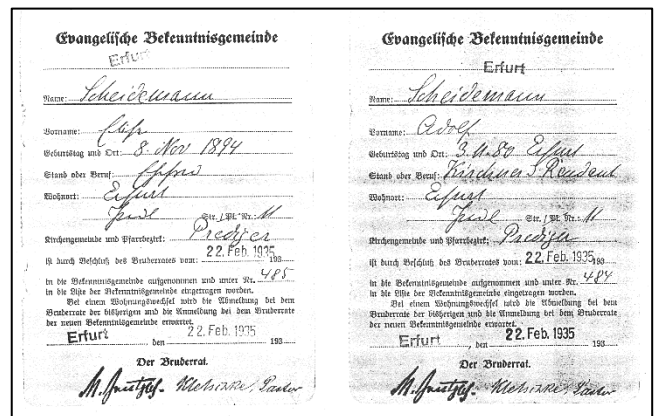 Evangelische Bekenntnisgemeinde
Erfurt
Name: Scheidemann
Vorname:
Geburtstag und Ort: 8. Nov 1894
Stand oder Beruf: Ehefrau
Wohnort: Erfurt
Str. / Pl. Nr.: 11
Kirchengemeinde und Pfarrbezirk: Prediger
ist durch Beschluß des Bruderrates vom: 22. Feb. 1935 193
in die Bekenntnisgemeinde aufgenommen und unter Nr. 485
in die Liste der Bekenntnisgemeinde eingetragen worden.
Bei einem Wohnungswechsel wird die Abmeldung bei dem
Bruderrate der bisherigen und die Anmeldung bei dem Bruderrate
der neuen Bekenntnisgemeinde erwartet.
Erfurt, den 22. Feb. 1935 193
Der Bruderrat.
Pastor
Evangelische Bekenntnisgemeinde
Erfurt
Name: Scheidemann
Vorname: Adolf
Geburtstag und Ort: 3.11.80 Erfurt
Stand oder Beruf: Kirchner u. Rendant
Wohnort: Erfurt
Str. / Pl. Nr.: 11
Kirchengemeinde und Pfarrbezirk: Prediger
ist durch Beschluß des Bruderrates vom: 22. Feb. 1935 193
in die Bekenntnisgemeinde aufgenommen und unter Nr. 484
in die Liste der Bekenntnisgemeinde eingetragen worden.
Bei einem Wohnungswechsel wird die Abmeldung bei dem
Bruderrate der bisherigen und die Anmeldung bei dem Bruderrate
der neuen Bekenntnisgemeinde erwartet.
Erfurt, den 22. Feb. 1935 193
Der Bruderrat.
Pastor